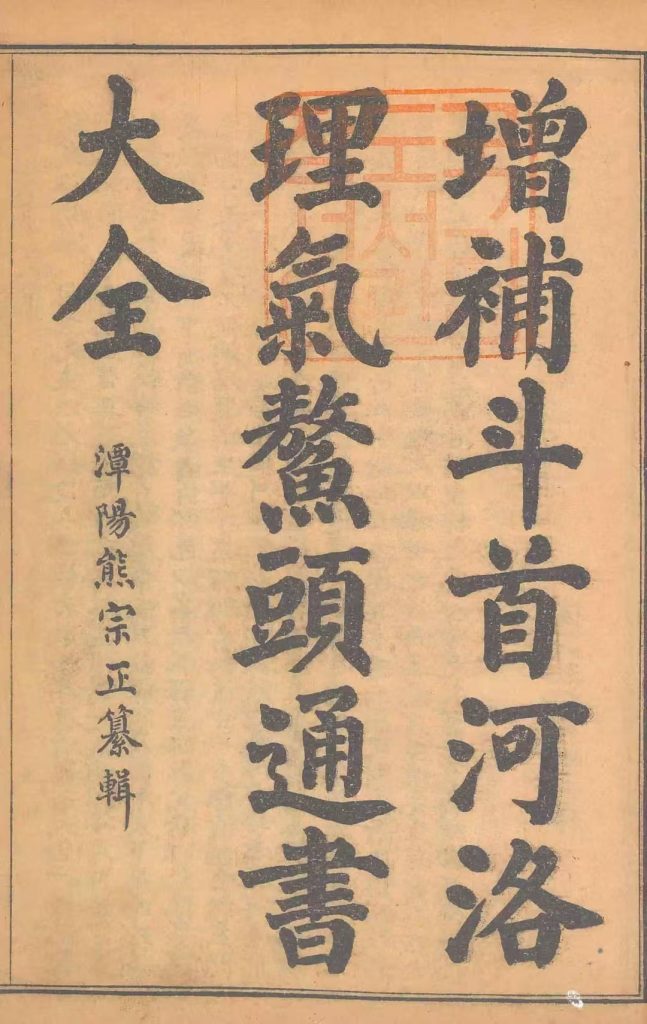 增補斗首河洛
理氣鰲頭通書
大全
潭陽熊宗正纂輯